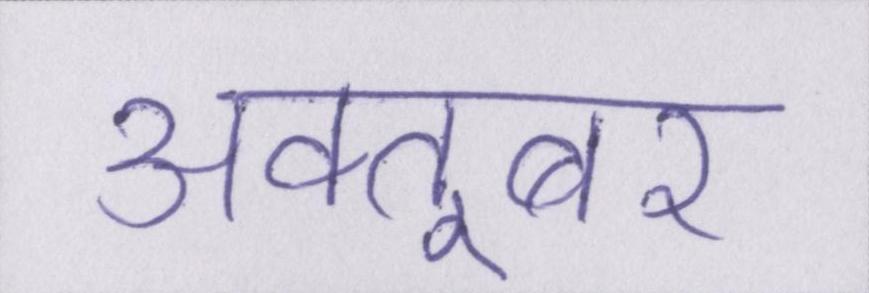 अक्तूबर